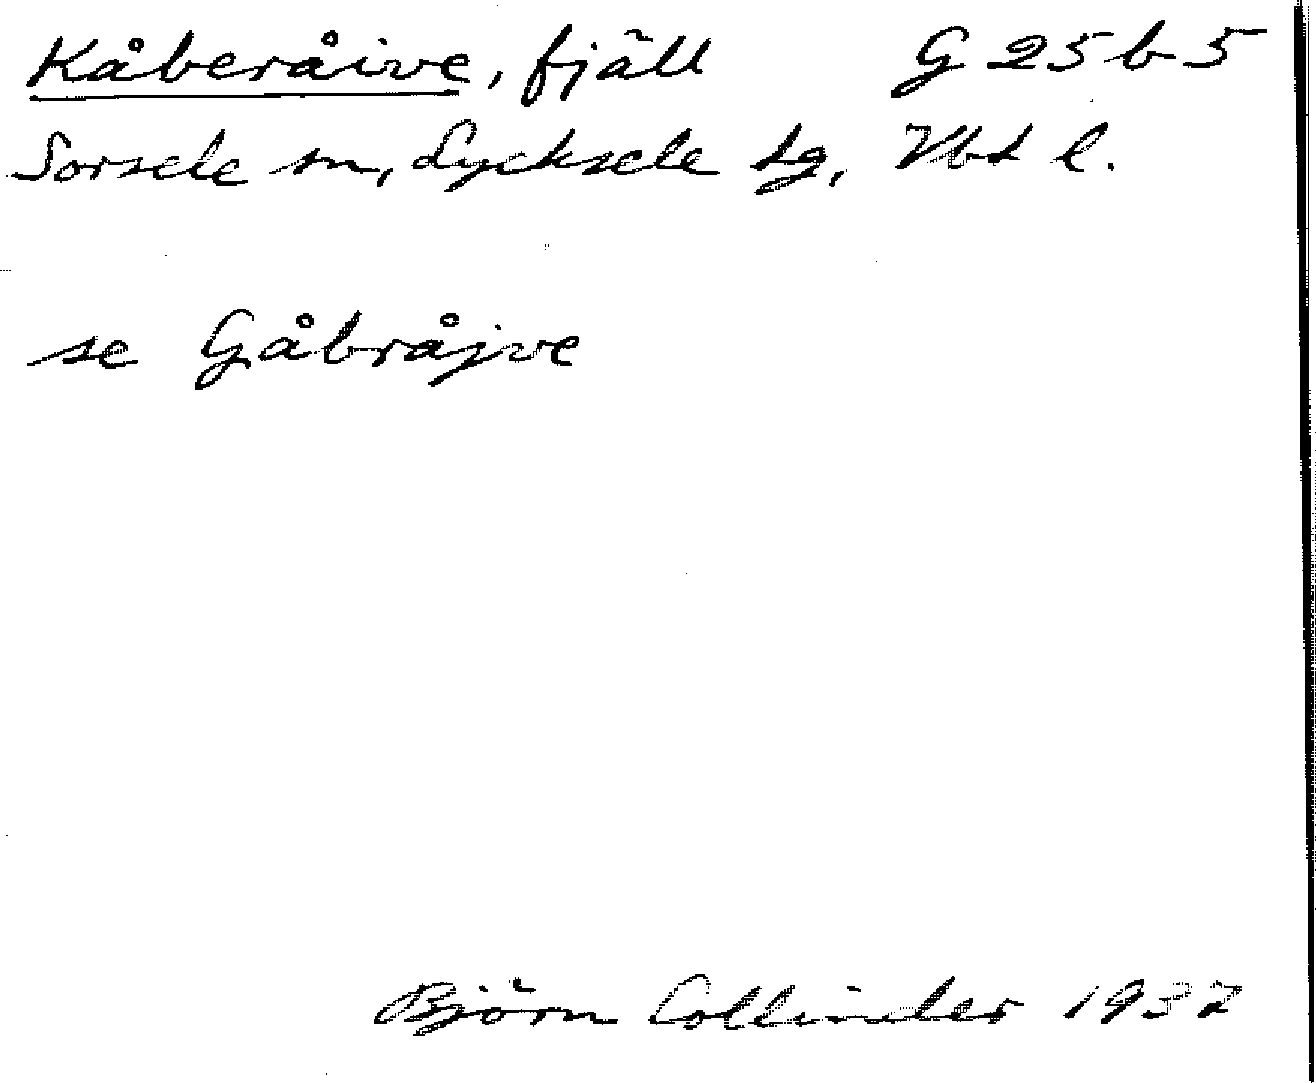 Kåberåive, fjäll G 25 b 5
Sorsele sn, Lycksele tg, Vbt l.
se Gåbråjve
Björn Collinder 1937